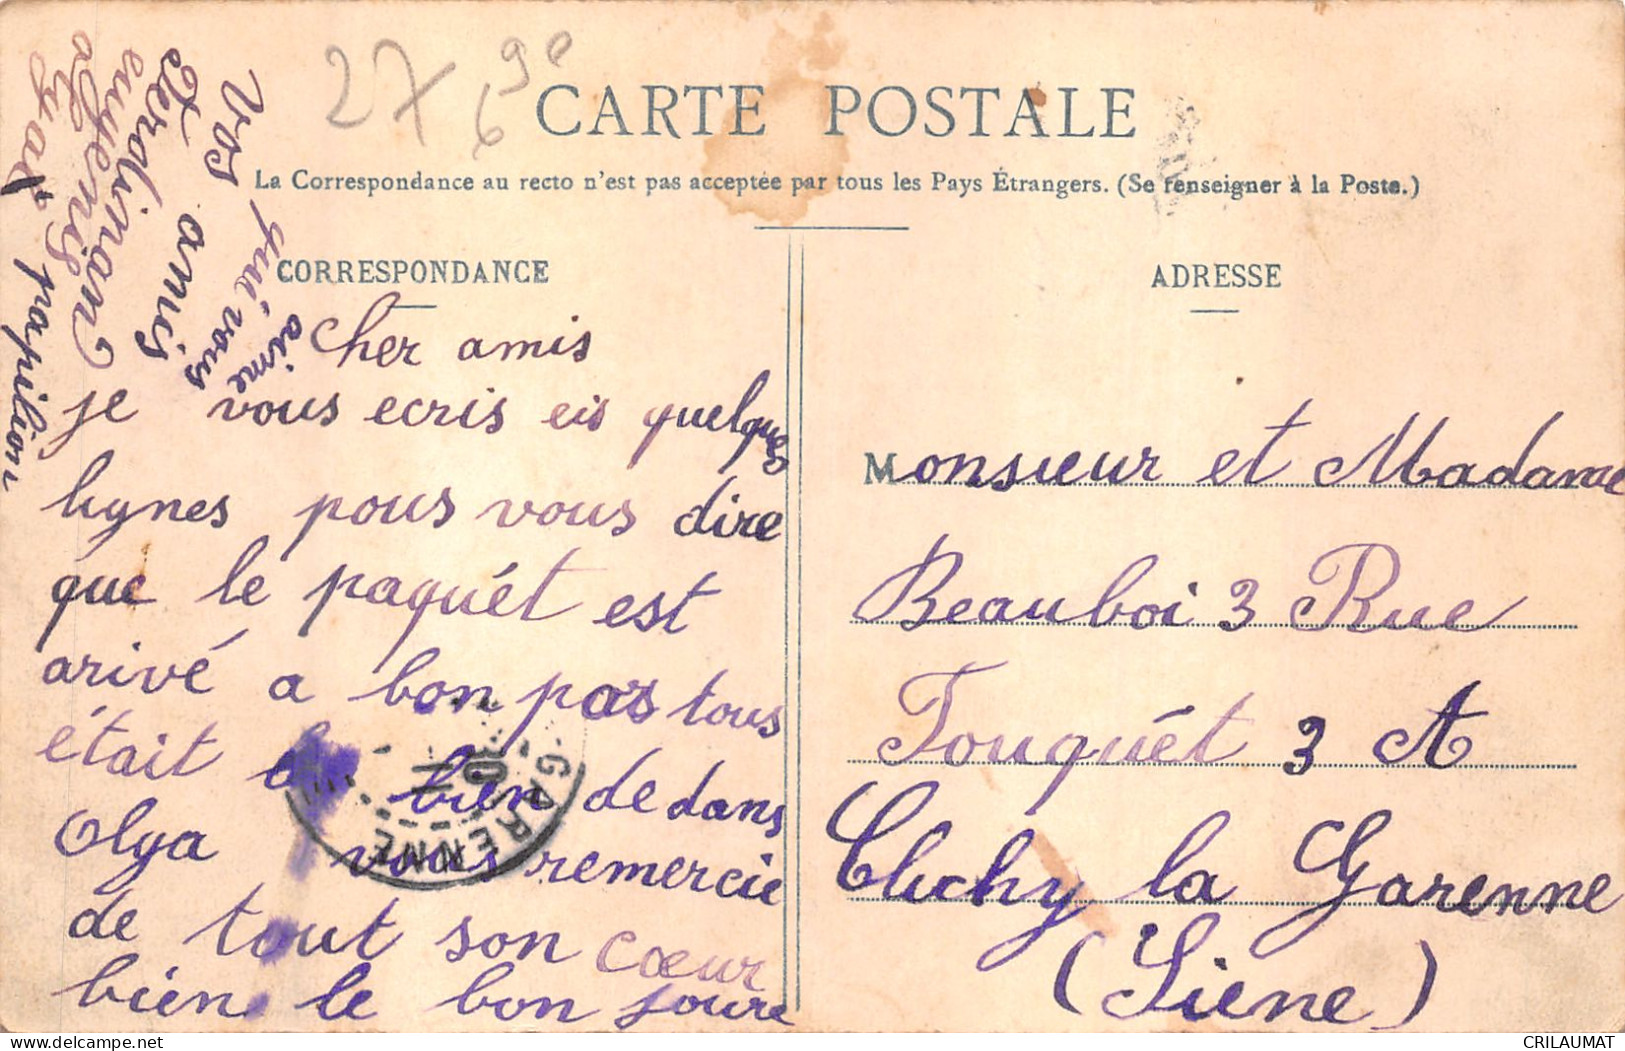 27 6 9e
CARTE POSTALE
La Correspondance au recto n'est pas acceptée par tous les Pays Étrangers. (Se renseigner à la Poste.)
CORRESPONDANCE
Cher amis
je vous ecris eis quelques
lignes pous vous dire
que le paquét est
arivé a bon pas tous
était bien de dans
Olga vous remercie
de tout son cœur
bien le bon joure
Vos amis
qui vous
aime
papillon
ADRESSE
Monsieur et Madame
Beauboi 3 Rue
Touquét 3 A
Clichy la Garenne
(Siene)
GARENNE
CRILAUMAT